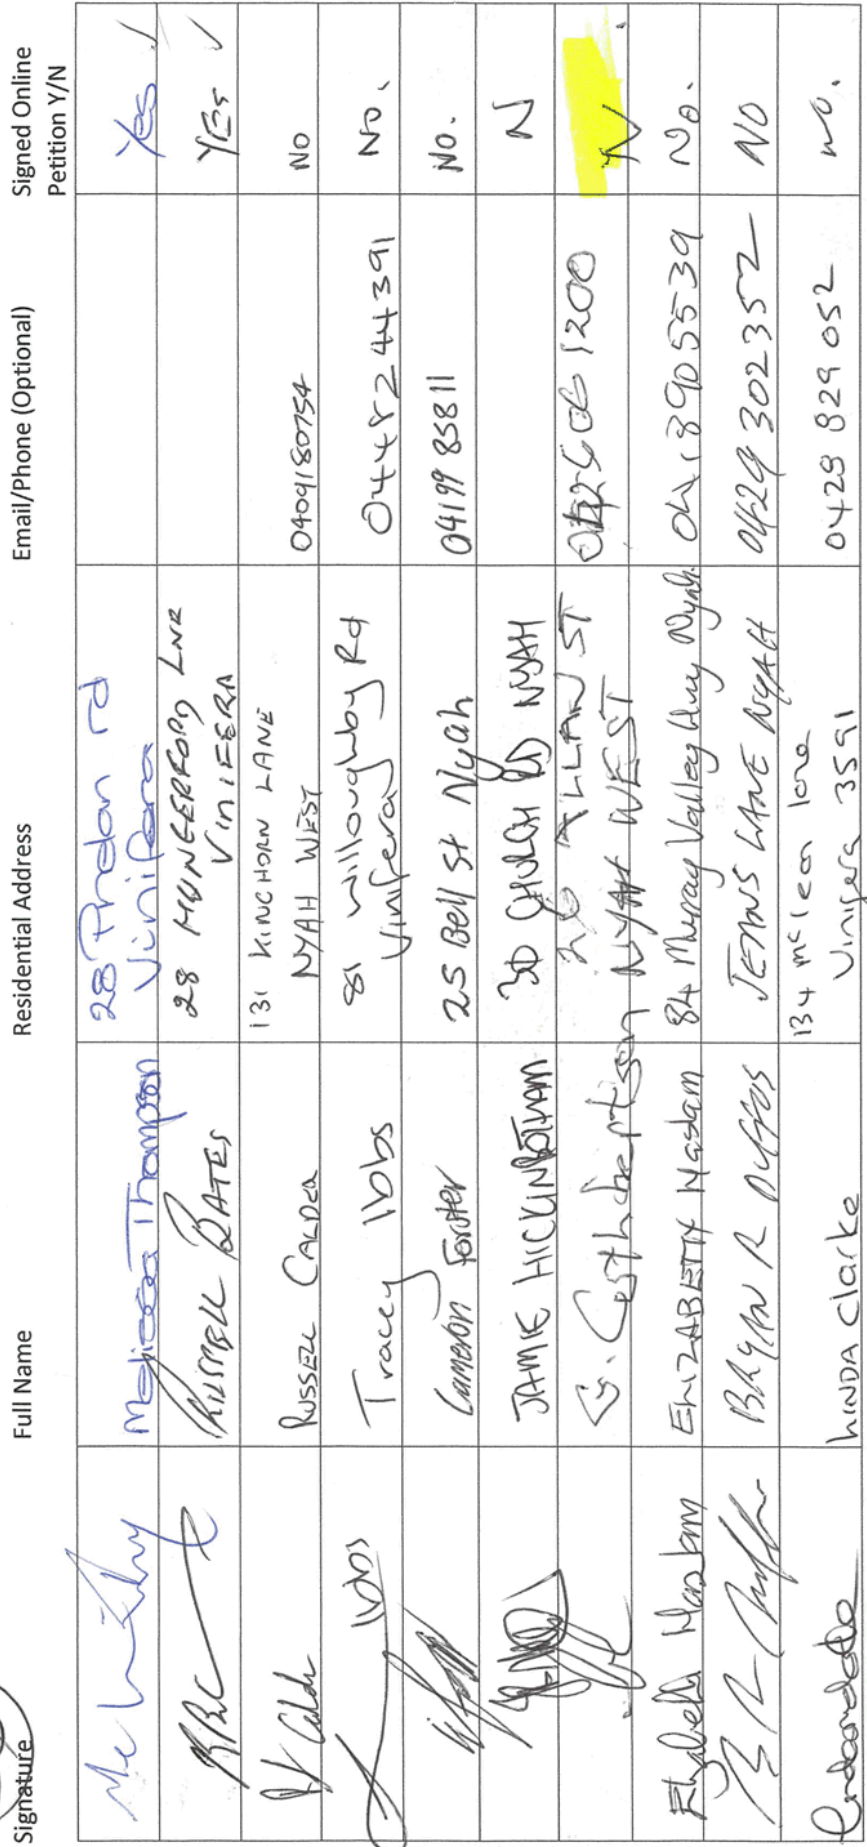 Signature Full Name Residential Address Email/Phone (Optional) Signed Online Petition Y/N
Melissa Thompson 28 Pridon rd Vinifera Yes ✓
RUSSELL BATES 28 HUNGERFORD LNE VINIFERA YES ✓
RUSSELL CALDER 131 KINGHORN LANE NYAH WEST 0409180754 NO
Ibbs Tracey Ibbs 81 Willoughby Rd Vinifera 0448244391 No.
Cameron Forster 25 Bell St Nyah 0419985811 No.
JAMIE HICKINBOTHAM 30 CHURCH RD NYAH N
G. Cuthbertson 26 ALLAN ST NYAH WEST N
Elizabeth Haslam ELIZABETH Haslam 84 Murray Valley Hwy Nyah. 0418905539 No.
BRYAN R DUFFUS JEANS LANE NYAH 0429 302352 NO
LINDA Clarke 134 McLean lane Vinifera 3591 0428 829 052 no.